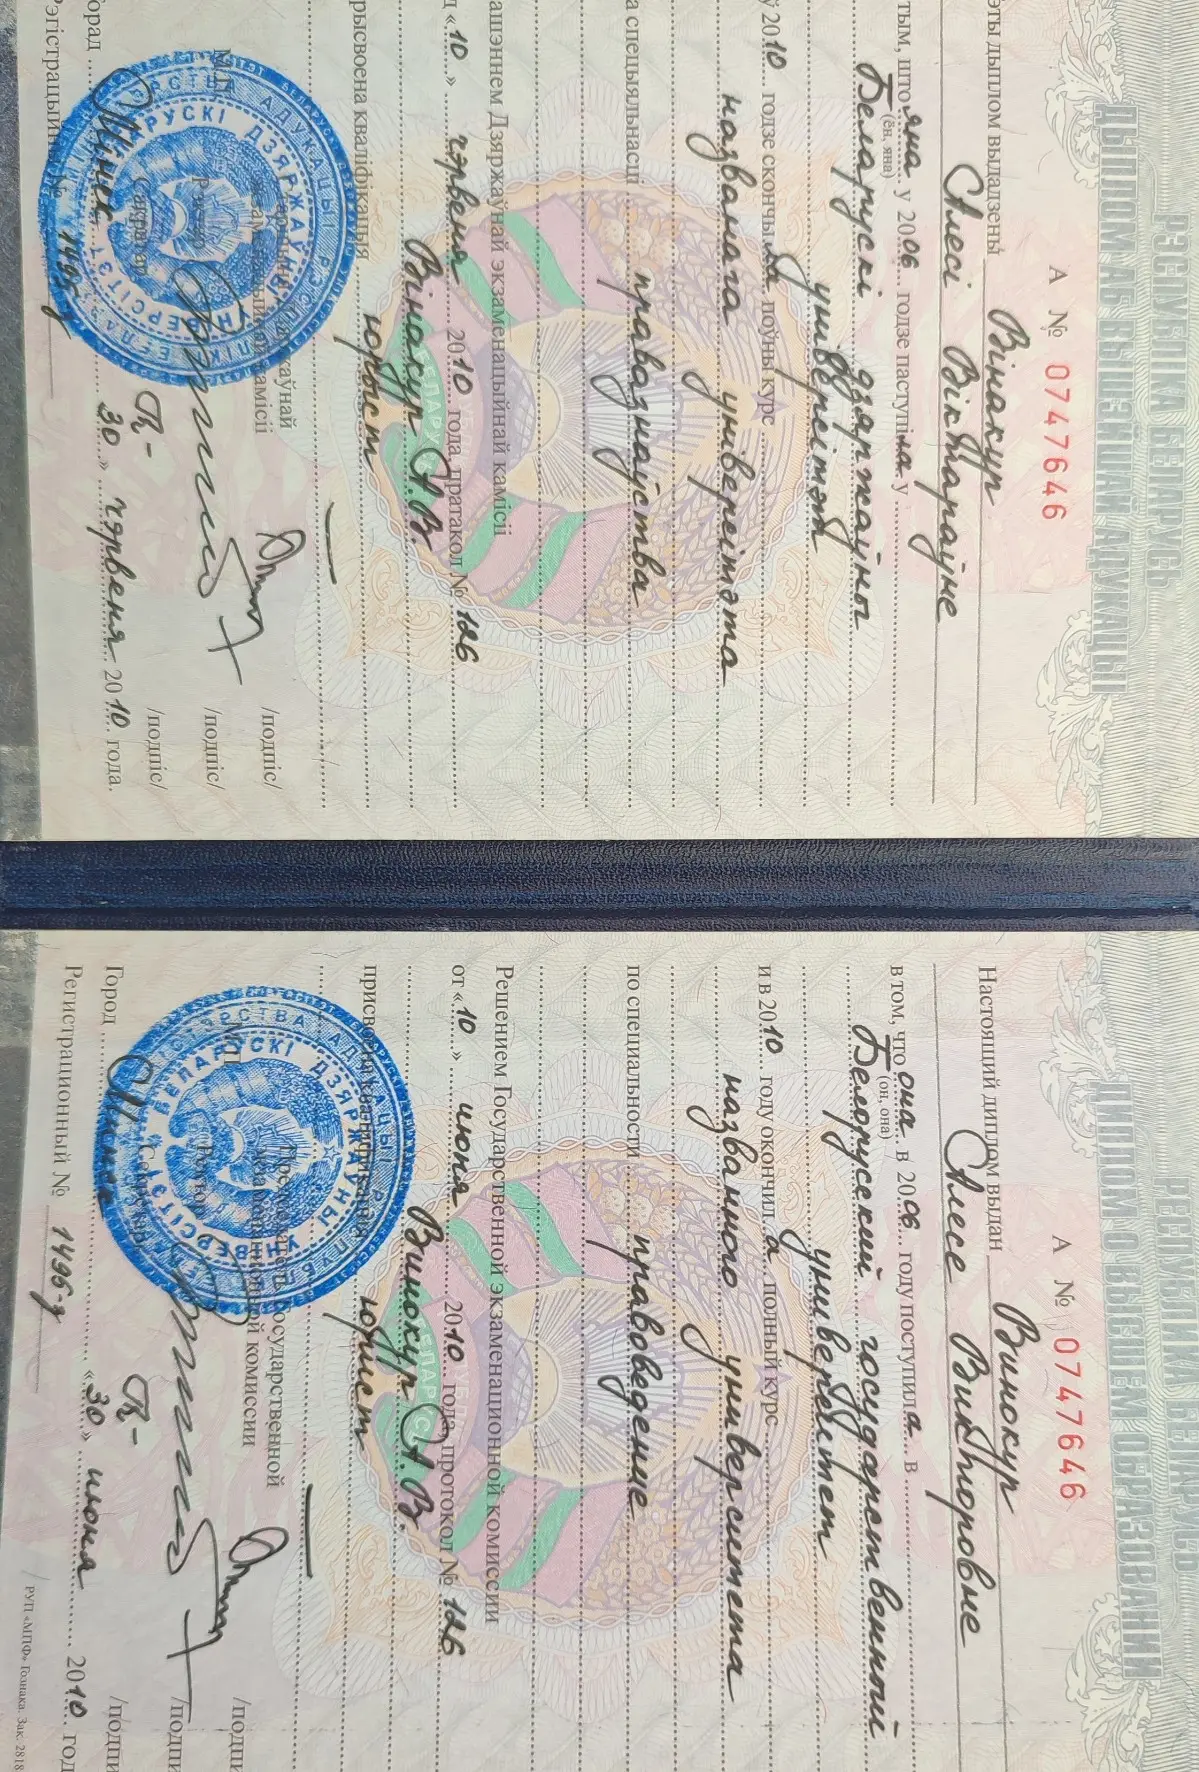 РЭСПУБЛІКА БЕЛАРУСЬ
ДЫПЛОМ АБ ВЫШЭЙШАЙ АДУКАЦЫІ
А № 0747646
эты дыплом выдадзены Вінакур
Алесі Віктараўне
тым, што яна у 2006 годзе паступіла у
(ён, яна)
Беларускі дзяржаўны
універсітэт
ў 2010 годзе скончыла поўны курс
названага універсітэта
а спецыяльнасці
правазнаўства
ашэннем Дзяржаўнай экзаменацыйнай камісіі
д «10» чэрвеня 2010 года, пратакол № 126
Вінакур А.В.
рысвоена кваліфікацыя юрыст
/подпіс/
/подпіс/
М.П. Рэктар
Сакратар /подпіс/
Горад Мінск «30» чэрвеня 2010 года.
Рэгістрацыйны №
МІНІСТЭРСТВА АДУКАЦЫІ РЭСПУБЛІКІ БЕЛАРУСЬ
БЕЛАРУСКІ ДЗЯРЖАЎНЫ УНІВЕРСІТЭТ
РЕСПУБЛИКА БЕЛАРУСЬ
ДИПЛОМ О ВЫСШЕМ ОБРАЗОВАНИИ
А № 0747646
Настоящий диплом выдан Винокур
Алесе Викторовне
в том, что она в 2006 году поступила в
(он, она)
Белорусский государственный
университет
и в 2010 году окончила полный курс
названного университета
по специальности
правоведение
Решением Государственной экзаменационной комиссии
от «10» июня 2010 года, протокол № 126
Винокур А.В.
присвоена квалификация юрист
Председатель Государственной
экзаменационной комиссии /подпи
М.П. Ректор /подпи
Секретарь /подпи
Город Минск «30» июня 2010 год
Регистрационный № 1496-д
МІНІСТЭРСТВА АДУКАЦЫІ РЭСПУБЛІКІ БЕЛАРУСЬ
БЕЛАРУСКІ ДЗЯРЖАЎНЫ УНІВЕРСІТЭТ
РУП «МПФ» Гознака. Зак. 2818